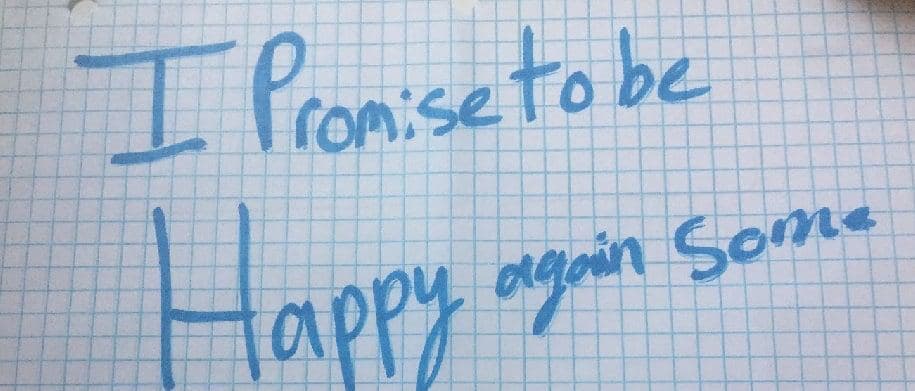 I Promise to be
Happy again Some